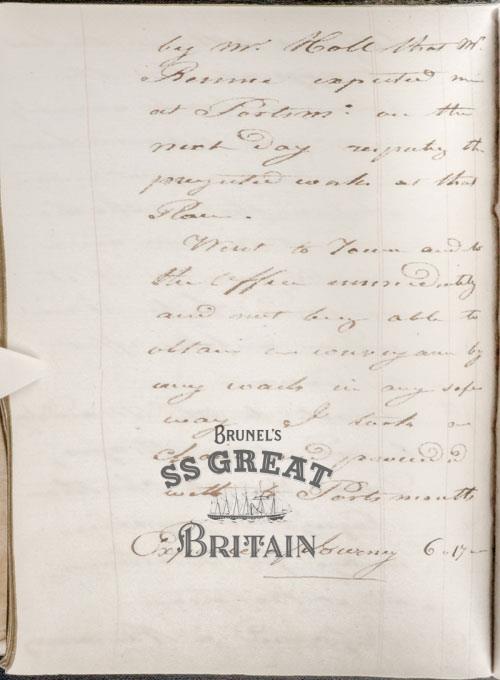 by Mr. Holl that Mr.
Rennie expected me
at Portsmo. on the
next Day respectg the
projected works at that
Place.
Went to Town and to
the Office immediately
and not being able to
obtain a conveyance by
any coach in any safe
way I took a
proceeded
with to Portsmouth
Expences of Journey 6.17.
BRUNEL'S
SS GREAT
BRITAIN